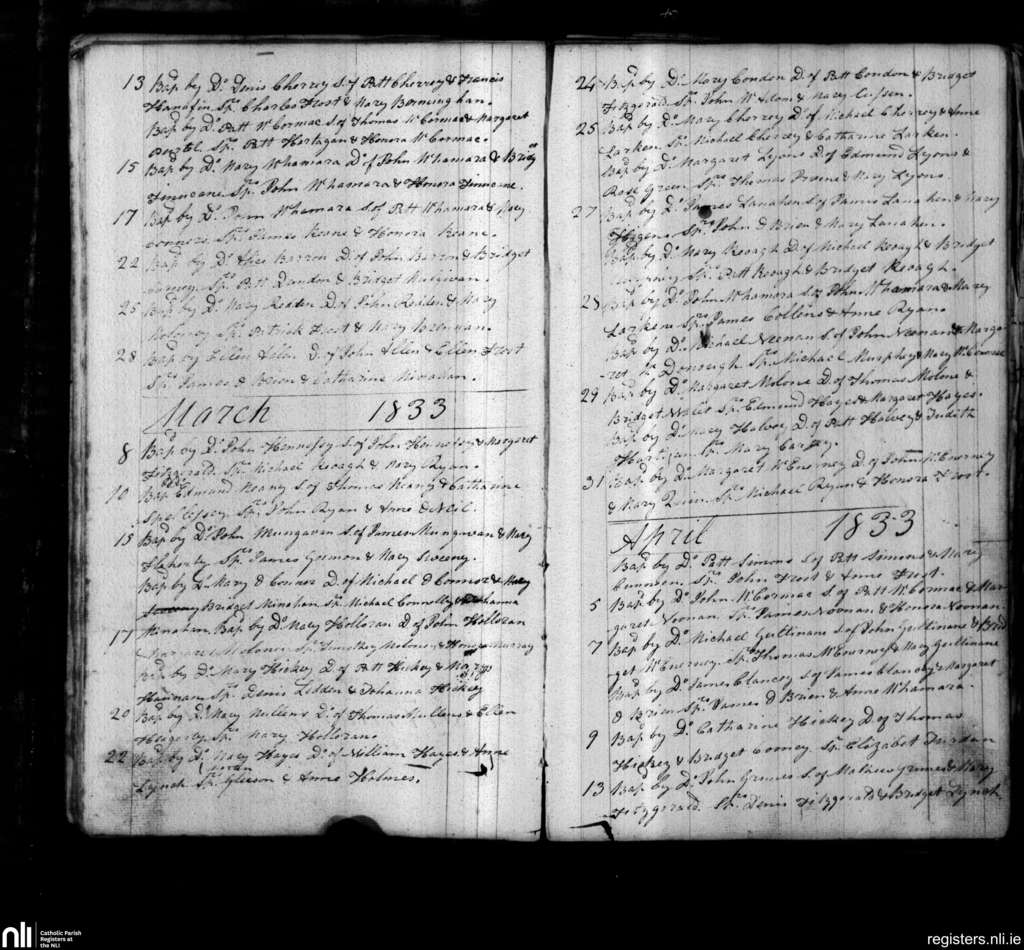 13 Bap by Do Denis Cherry S. of Patt Cherry & Francis
Hanafin Sp. Charles Frost & Mary Bormingham.
Bap by Do Patt McCormac S. of Thomas McCormac & Margaret
Sp. Patt Hartagan & Honora McCormac.
15 Bap by Do Mary McNamara D. of John McNamara &
Finucane Sp. John McNamara & Honora Finucane.
17 Bap by Do McNamara S. of Patt McNamara & Mary
Connors Sp. James Keane & Honora Keane.
22 Bap by Do Barron D. of John Barron & Bridget
Sp. Patt Dundon & Bridget
25 Bap by Do Mary D. of John & Mary
Moloney Sp. Patrick Frost & Mary
28 Bap by Ellen Allen D. of John Allen & Ellen Frost
Sp. James O Brien & Catharine
March 1833
8 Bap by Do John Hennessy S. of John Hennessy & Margaret
Fitzgerald. Sp. Michael Keough & Mary Ryan.
10 Bap Edmund Keany S. of Thomas Keany & Catharine
Spellissey Sp. John Ryan & Anne O Neil.
15 Bap by Do John Mungavan S. of James Mungavan & Mary
Flaherty Sp. James Gorman & Mary Sweeney.
Bap by Do Mary O Connor D. of Michael O Connor &
Bridget Minahan Sp. Michael Connolly & Johanna
17 Minahan Bap by Do Mary Holloran D. of John Holloran
Moloney Sp. Timothy Moloney & Murray
by Do Mary Hickey D. of Patt Hickey & Mary
Sp. Denis Lidden & Johanna Hickey
20 Bap by Do Mary Mullens D. of Thomas Mullens & Ellen
Hegerty Sp. Mary Holloran.
22 Bap by Do Mary Hayes D. of William Hayes & Anne
Lynch Sp. Gleeson & Anne Holmes.
24 Bap by Do Mary Condon D. of Patt Condon & Bridget
Fitzgerald. Sp. John & Mary
25 Bap by Do Mary Cherry D. of Michael Cherry & Anne
Larken Sp. Michael Cherry & Catharine Larken.
Bap by Do Margaret Lyons D. of Edmund Lyons &
Rose Green Sp. Thomas & Mary Lyons.
27 Bap by Do James Lanahen S. of James Lanahen & Mary
Hogens Sp. John O Brien & Mary Lanahen.
Bap by Do Mary Keough D. of Michael Keough & Bridget
Sp. Patt Keough & Bridget Keough.
28 Bap by Do John McNamara S. of John McNamara & Mary
Larken Sp. James Collins & Anne Ryan.
Bap by Do Michael Neenan S. of John Neenan & Marga
ret Mc Donough Sp. Michael Murphey & Mary
29 Bap by Do Margaret Molone D. of Thomas Molone &
Bridget Sp. Edmund Hayes & Margaret Hayes.
Bap by Do Mary Halvey D. of Patt Halvey & Judith
Hartigan Sp. Mary
31 Bap by Do Margaret McEnerney D. of John McEnerney
& Mary Quin Sp. Michael Ryan & Honora Frost.
April 1833
Bap by Do Patt Simons S. of Patt Simons & Mary
Sp. John Frost & Anne Frost.
5 Bap by Do John McCormac S. of Patt McCormac & Mar
garet Noonan Sp. James Noonan & Honora Noonan.
7 Bap by Do Michael Gullinane S. of John Gullinane & Brid
get McEnerney Sp. Thomas McEnerney & Mary Gullinane
Bap by Do James Clancey S. of James Clancey & Margaret
O Brien Sp. James O Brien & Anne McNamara.
9 Bap by Do Catharine Hickey D. of Thomas
Hickey & Bridget Cooney Sp. Elizabet
13 Bap by Do John Grimes S. of Mathew Grimes & Mary
Fitzgerald. Sp. Denis Fitzgerald & Bridget Lynch
nli Catholic Parish
Registers at
the NLI
registers.nli.ie